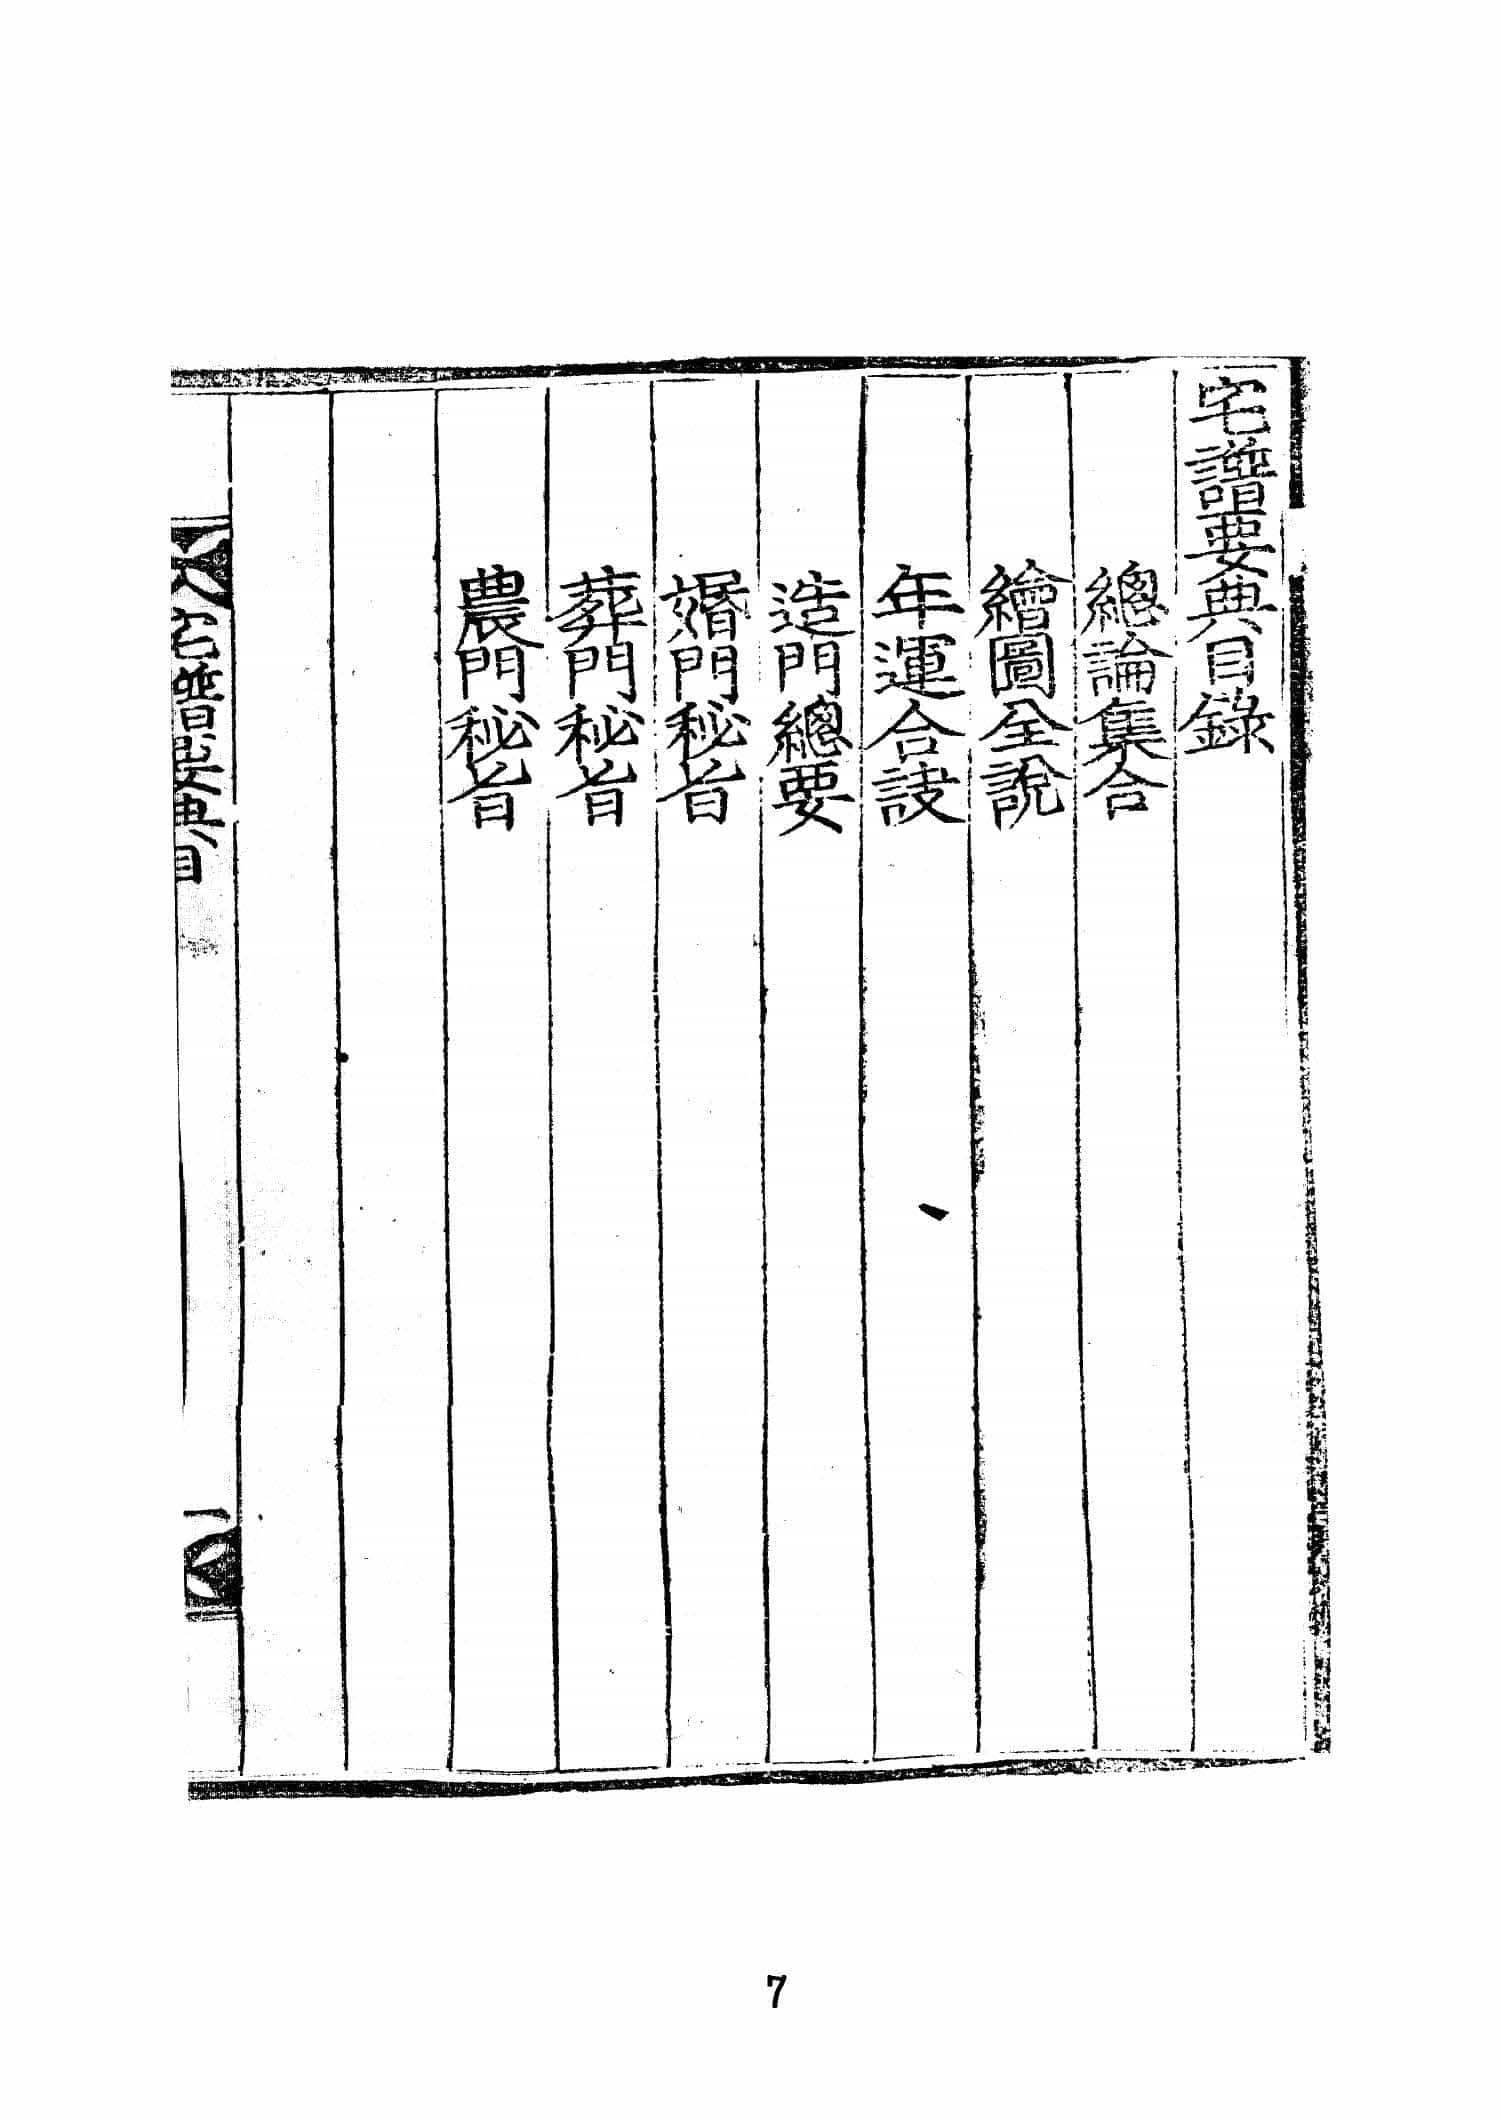 宅譜要典目錄
總論集合
繪圖全說
年運合訣
造門總要
婚門秘旨
葬門秘旨
農門秘旨
宅譜要典目
一
7